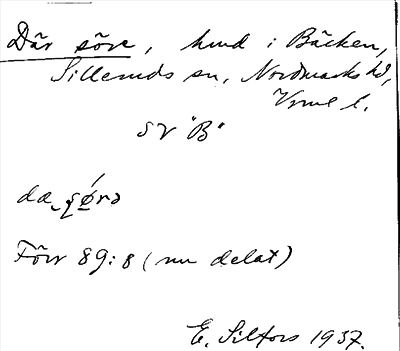 Där söre, hmd i Bäcken,
Silleruds sn, Nordmarks hd,
Vrml l.
SV "B"
da sǿrə
Förr 89:8 (nu delat)
E. Silfors 1937.